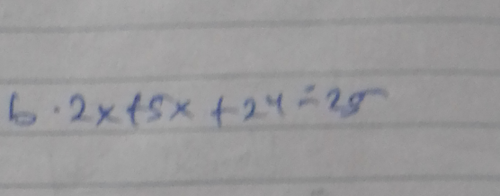 b. 2x+5x+24=25